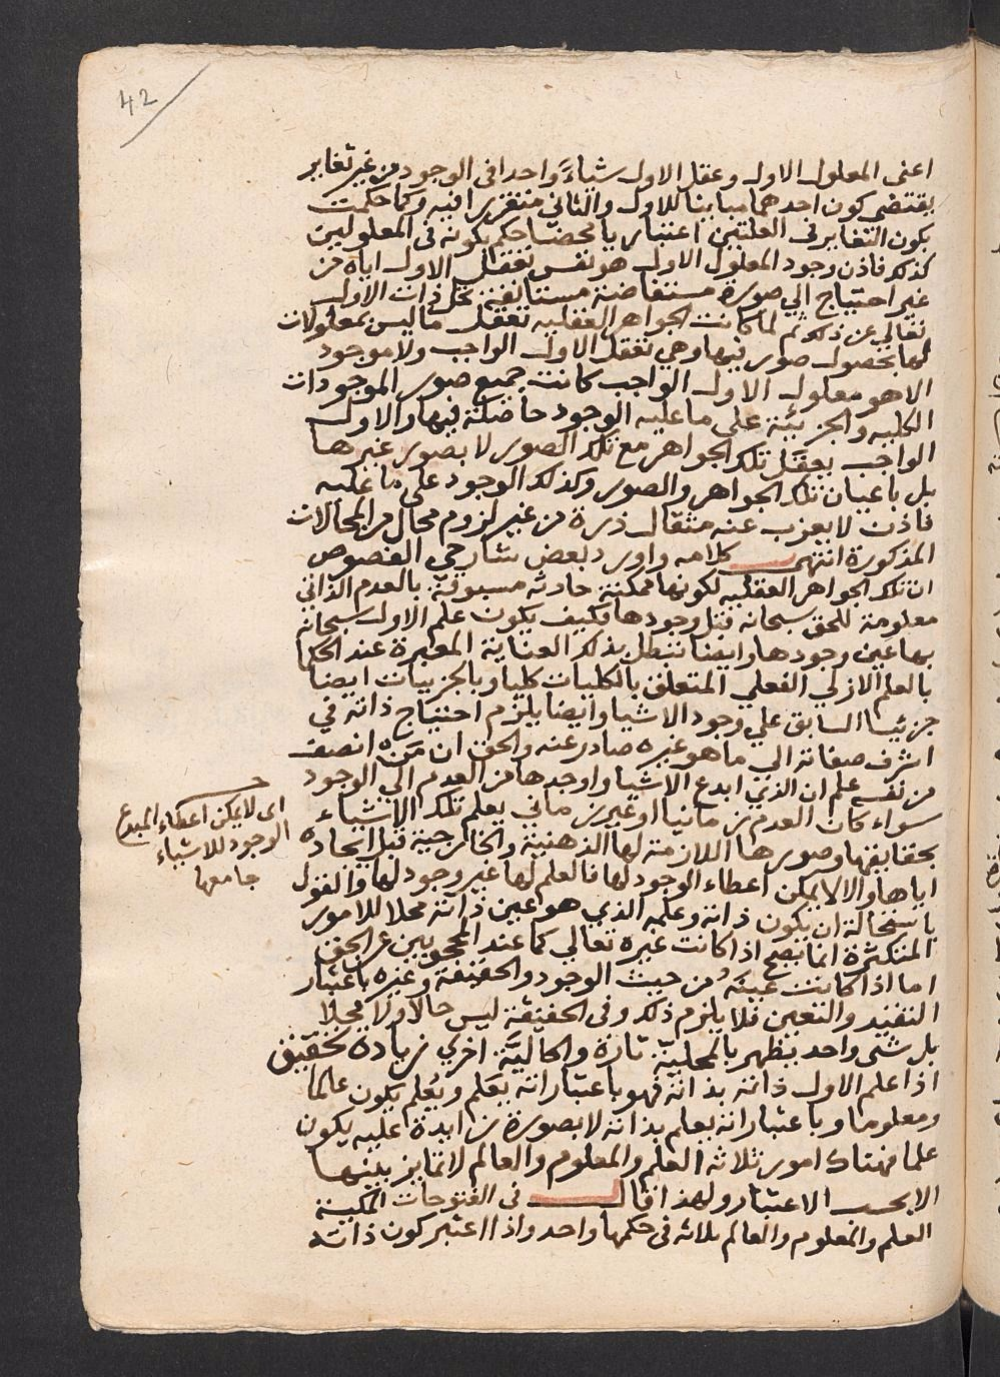 42
اعنى المعلول الاول وعقل الاول شياءً واحدا فى الوجود من غير تغاير
يقتضى كون احدهما مباينا للاول والثانى متقررا فيه وكما حكمت
بكون التغاير فى العلتين اعتباريا محضا حكم بكونه فى المعلولين
كذلك فاذن وجود المعلول الاول هو نفس تعقل الاول اياه من
غير احتياج الي صورة مستفاضة مستانفة تحل ذات الاول
تعالى عن ذلك ثم لما كانت الجواهر العقليه تعقل ما ليس بمعلولات
لها بحصول صور فيها وهي تعقل الاول الواجب ولا موجود
الا هو معلول الاول الواجب كانت جميع صور الموجودات
الكليه والجزئية على ما عليه الوجود حاصلة فيها والاول
الواجب يعقل تلك الجواهر مع تلك الصور لا بصور غيرها
بل باعيان تلك الجواهر والصور وكذلك الوجود على ما عليه
فاذن لا يعزب عنه مثقال ذرة من غير لزوم محال من المحالات
المذكورة انتهى كلامه واورد بعض شارحي الفصوص
ان تلك الجواهر العقليه لكونها ممكنة حادثه مسبوقة بالعدم الذاتي
معلومة للحق سبحانه قبل وجودها فكيف يكون علم الاول سبحانه
بها عين وجودها وايضا تبطل بذلك العناية المعبرة عند الحكما
بالعلم الازلي الفعلي المتعلق بالكليات كليا وبالجزييات ايضا
جزئيا السابق علي وجود الاشيا وايضا يلزم احتياج ذاته في
اشرف صفاته الي ما هو غيره صادر عنه والحق ان مَن انصف
من نفسه علم ان الذي ابدع الاشيا واوجدها من العدم الي الوجود
سواء كان العدم زمانيا او غير زماني يعلم تلك الاشياء
بحقايقها وصورها اللازمة لها الذهنية والخارجية قبل ايجاده
اياها والا لا يمكن اعطاء الوجود لها فالعلم لها غير وجود لها والقول
باستحالة ان يكون ذاته وعلمه الذي هو عين ذاته محلا للامور
المتكثرة انما يصح اذا كانت غيره تعالي كما عند المحجوبين عن الحق
اما اذا كانت عينَهُ من حيث الوجود والحقيقة وغيره باعتبار
التقيد والتعين فلا يلزم ذلك وفى الحقيقة ليس حالا ولا محلا
بل شى واحد يظهر بالمحلية تارة والحالية اخري زيادة تحقيق
اذا علم الاول ذاته بذاته فهو باعتبار انه يعلم ويُعلم يكون عالما
ومعلوما وباعتبار انه يعلم بذاته لا بصورة زايدة عليه يكون
علما فهناك امور ثلاثه العلم والمعلوم والعالم لا تمايز بينها
الا بحسب الاعتبار ولهذا قال فى الفتوحات المكية
العلم والمعلوم والعالم ثلاثه فى حكمها واحد واذا اعتبر كون ذاته
اى لا يمكن اعطاء المبدع
الوجود للاشياء
جامعها